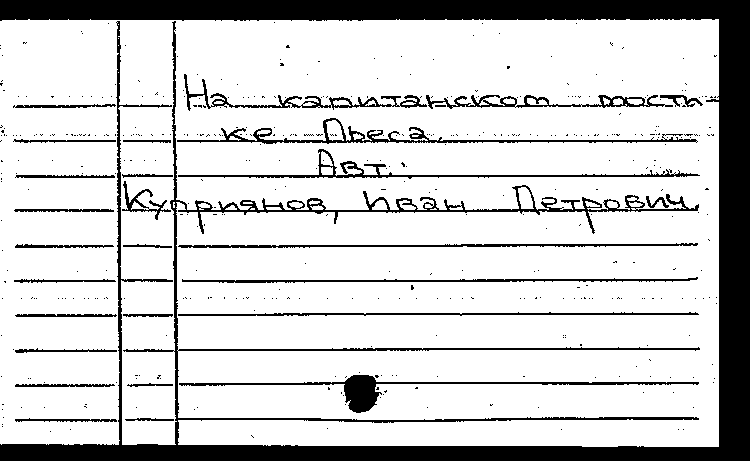 На капитанском мости-
ке. Пьеса.
Авт.:
Куприянов, Иван Петрович.